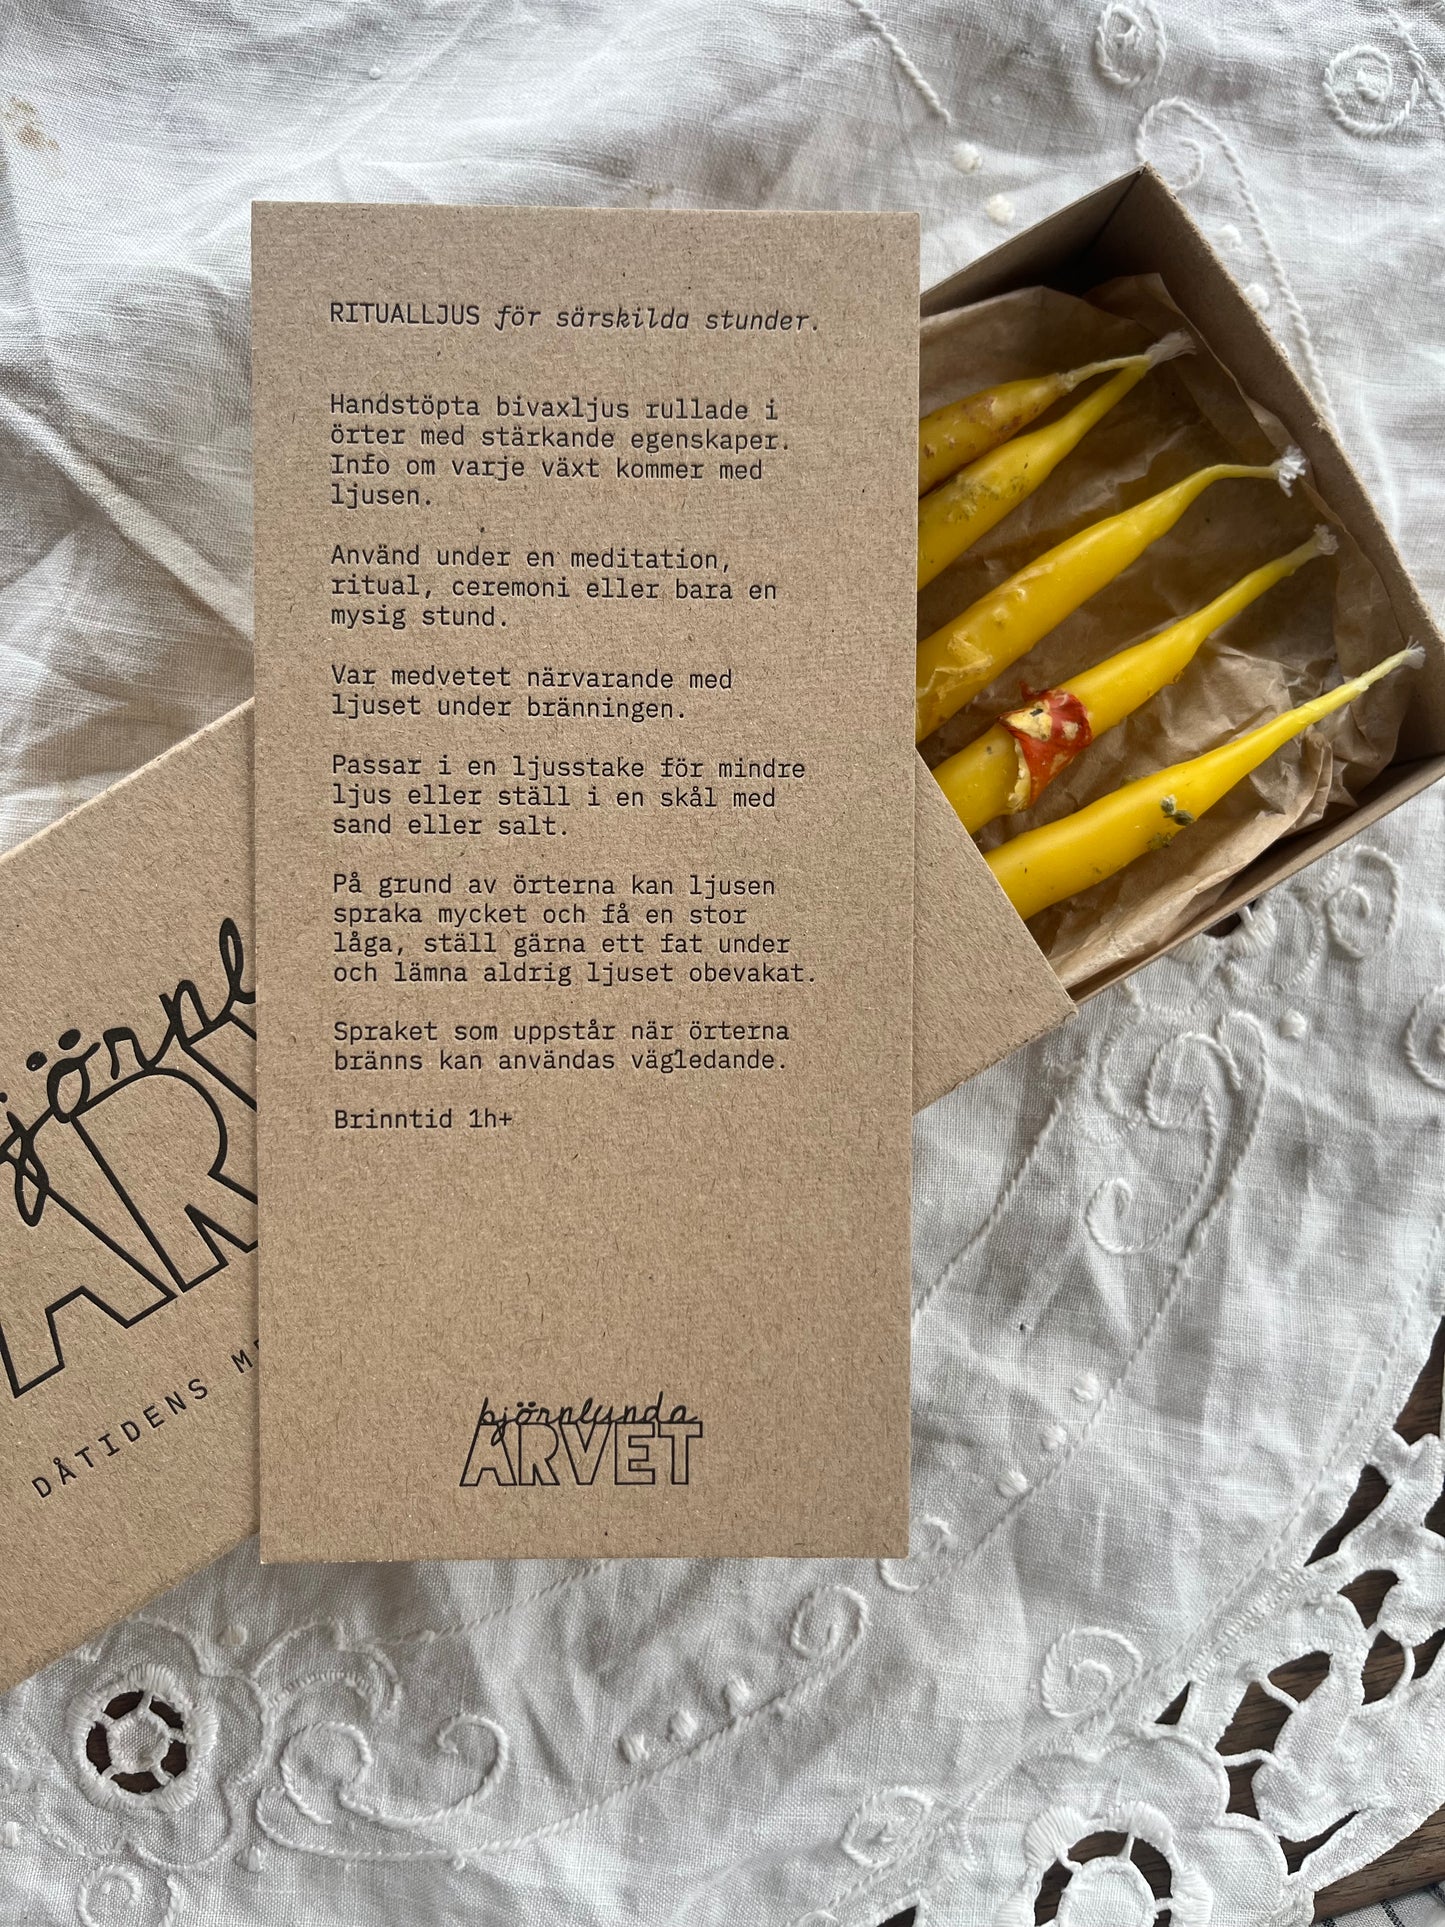 RITUALLJUS för särskilda stunder.
Handstöpta bivaxljus rullade i
örter med stärkande egenskaper.
Info om varje växt kommer med
ljusen.
Använd under en meditation,
ritual, ceremoni eller bara en
mysig stund.
Var medvetet närvarande med
ljuset under bränningen.
Passar i en ljusstake för mindre
ljus eller ställ i en skål med
sand eller salt.
På grund av örterna kan ljusen
spraka mycket och få en stor
låga, ställ gärna ett fat under
och lämna aldrig ljuset obevakat.
Spraket som uppstår när örterna
bränns kan användas vägledande.
Brinntid 1h+
björnlunda
ARVET
DÅTIDENS